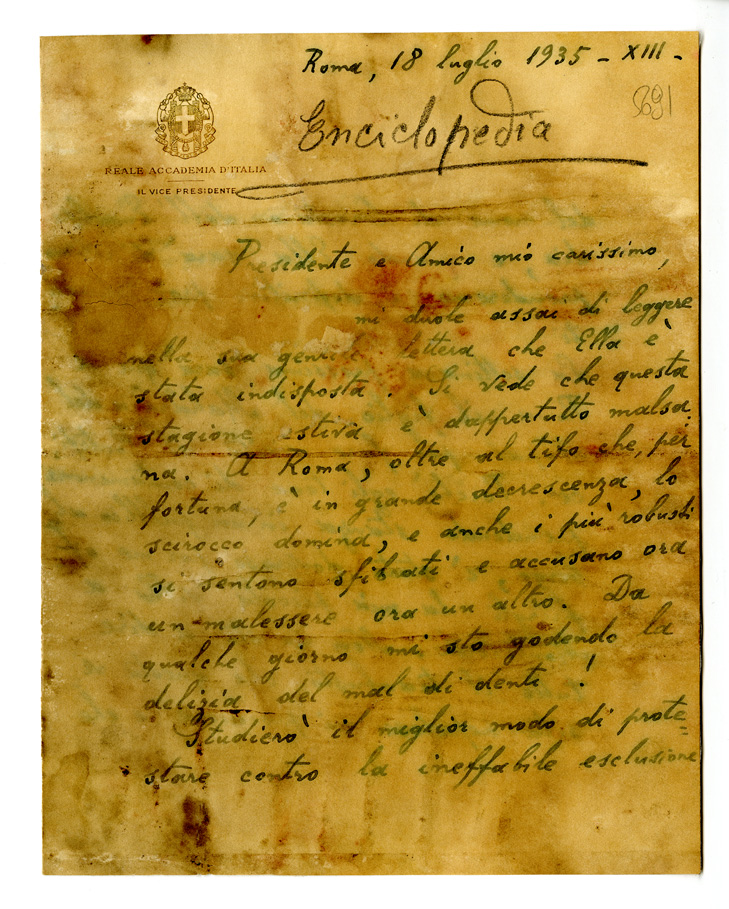 Roma, 18 luglio 1935 - XIII -
Enciclopedia
REALE ACCADEMIA D'ITALIA
IL VICE PRESIDENTE
Presidente e Amico mio carissimo,
mi duole assai di leggere
nella sua lettera che Ella è
stata indisposta. Si vede che questa
stagione estiva è dappertutto malsa
na. A Roma, oltre al tifo che, per
fortuna, è in grande decrescenza, lo
scirocco domina, e anche i più robusti
si sentono sfibrati e accusano ora
un malessere ora un altro. Da
qualche giorno mi sto godendo la
delizia del mal di denti!
Studierò il miglior modo di prote=
stare contro la ineffabile esclusione